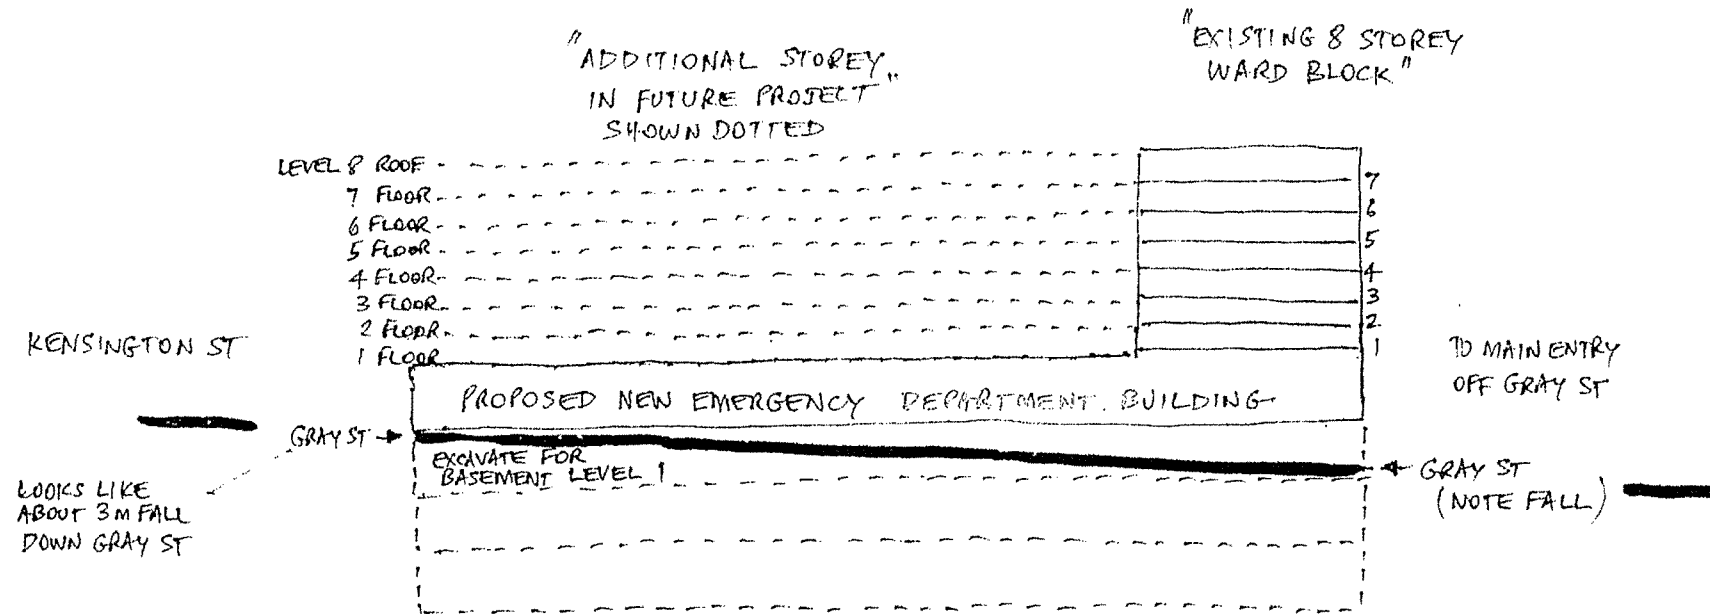 "ADDITIONAL STOREY
IN FUTURE PROJECT"
SHOWN DOTTED
"EXISTING 8 STOREY
WARD BLOCK"
LEVEL 8 ROOF
7 FLOOR
6 FLOOR
5 FLOOR
4 FLOOR
3 FLOOR
2 FLOOR
1 FLOOR
7
6
5
4
3
2
1
KENSINGTON ST
TO MAIN ENTRY
OFF GRAY ST
PROPOSED NEW EMERGENCY DEPARTMENT. BUILDING
GRAY ST
EXCAVATE FOR
BASEMENT LEVEL 1
GRAY ST
(NOTE FALL)
LOOKS LIKE
ABOUT 3M FALL
DOWN GRAY ST